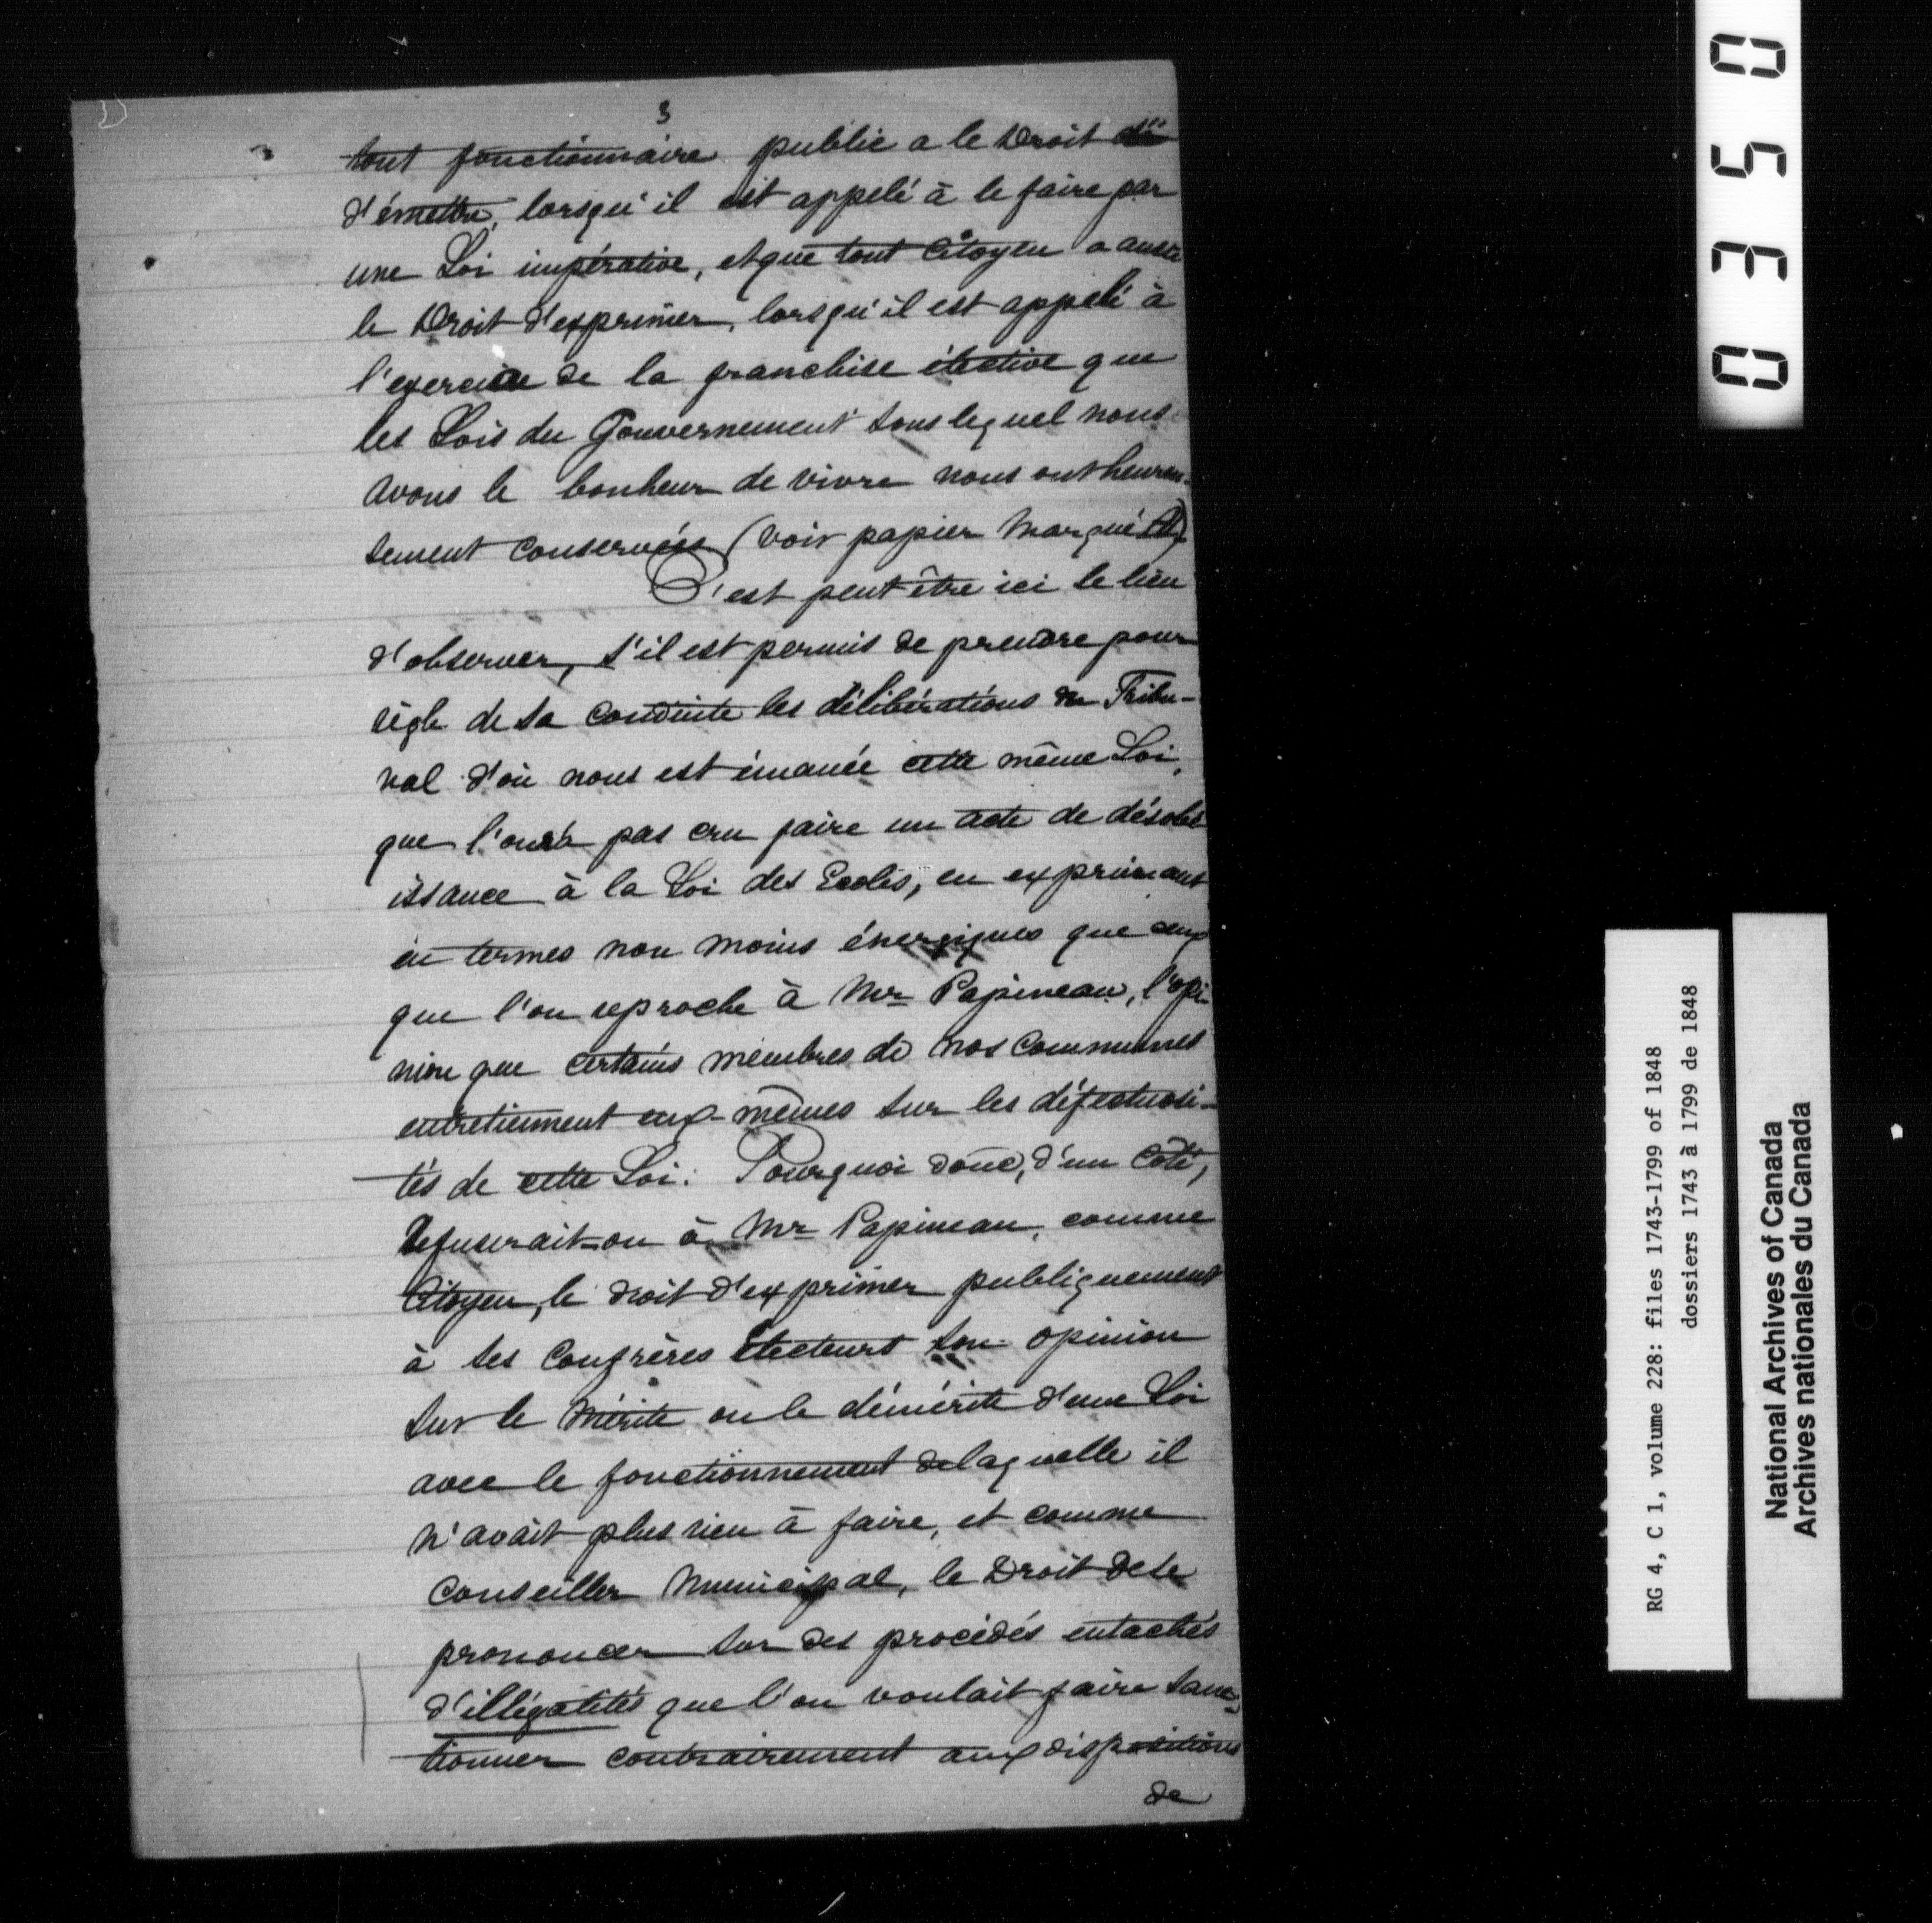 3
tout fonctionnaire public a le Droit
d'émettre, lorsqu'il est appelé à le faire par
une Loi impérative, et que tout Citoyen a aussi
le Droit d'exprimer, lorsqu'il est appelé à
l'exercice de la franchise élective que
les Lois du Gouvernement sous lequel nous
avons le bonheur de vivre nous ont heureu-
sement conservées (voir papier marqué A)
C'est peut être ici le lieu
d'observer, s'il est permis de prendre pour
règle de sa conduite les délibérations du Tribu-
nal d'où nous est émanée cette même Loi,
que l'on a pas cru faire un acte de désobé
issance à la Loi des Ecoles, en exprimant
en termes non moins énergiques que ceux
que l'on reproche à Mr Papineau, l'opi
nion que certains membres de nos Communes
entretiennent eux-mêmes sur les défectuosi-
tés de cette Loi. Pourquoi donc, d'un Côté,
Refuserait-on à Mr Papineau, comme
Citoyen, le droit d'exprimer publiquement
à ses Confrères Electeurs son opinion
sur le Mérite ou le démérite d'une Loi
avec le fonctionnement de laquelle il
n'avait plus rien à faire, et comme
Conseiller Municipal, le Droit de se
prononcer sur des procédés entachés
d'illégalités que l'on voulait faire sanc-
tionner contrairement aux dispositions
de
0350
RG 4, C 1, volume 228: files 1743-1799 of 1848
dossiers 1743 à 1799 de 1848
National Archives of Canada
Archives nationales du Canada